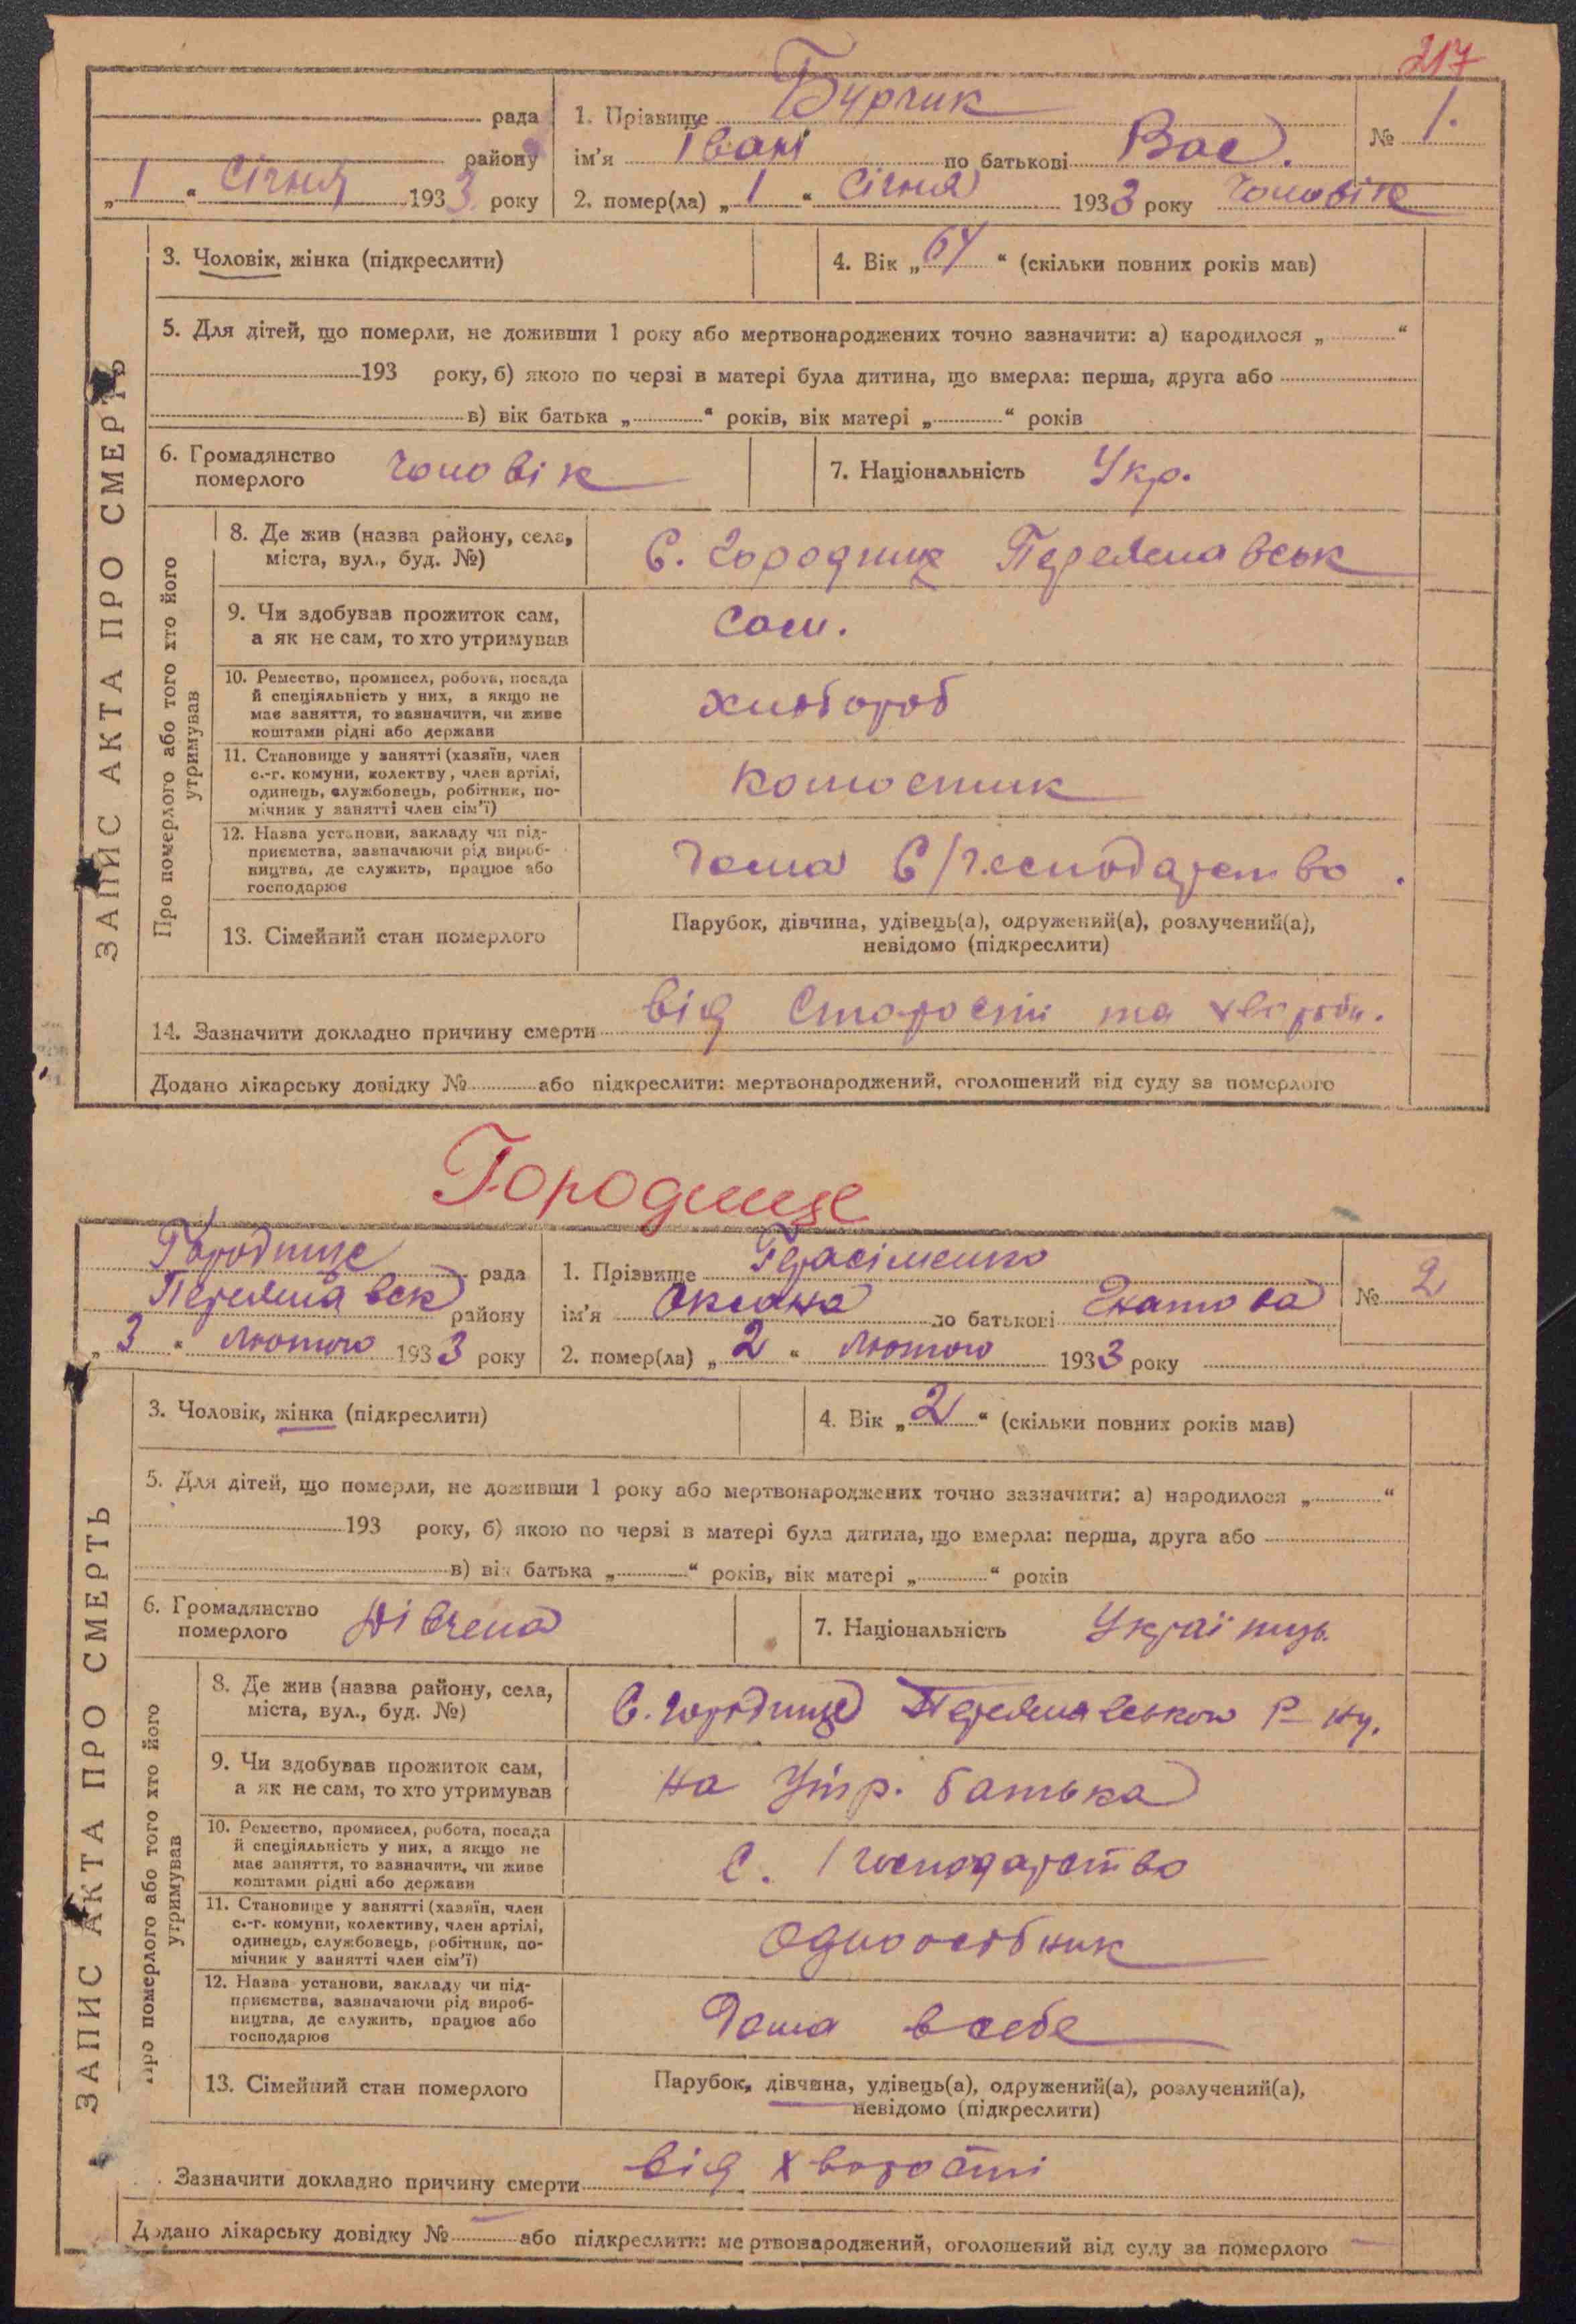 217
рада
району
„ 1 “ Січня 1933 року
1. Прізвище Бурлик
ім'я Івані по батькові Вас.
2. помер(ла) „ 1 “ Січня 1933 року чоловік
№ 1.
ЗАПИС АКТА ПРО СМЕРТЬ
3. Чоловік, жінка (підкреслити)
4. Вік „ 64 “ (скільки повних років мав)
5. Для дітей, що померли, не доживши 1 року або мертвонароджених точно зазначити: а) народилося „ “
193 року, б) якою по черзі в матері була дитина, що вмерла: перша, друга або
в) вік батька „ “ років, вік матері „ “ років
6. Громадянство
померлого
чоловік
7. Національність Укр.
Про померлого або того хто його
утримував
8. Де жив (назва району, села,
міста, вул., буд. №)
С. Городище
9. Чи здобував прожиток сам,
а як не сам, то хто утримував
сам.
10. Ремество, промисел, робота, посада
й спеціяльність у них, а якщо не
має заняття, то зазначити, чи живе
коштами рідні або держави
хлібороб
11. Становище у занятті (хазяїн, член
с.-г. комуни, колективу, член артілі,
одинець, службовець, робітник, по-
мічник у занятті член сім'ї)
12. Назва установи, закладу чи під-
приємства, зазначаючи рід вироб-
ництва, де служить, працює або
господарює
дома С/господарство.
13. Сімейний стан померлого
Парубок, дівчина, удівець(а), одружений(а), розлучений(а),
невідомо (підкреслити)
14. Зазначити докладно причину смерти від Старости та хвороби.
Додано лікарську довідку № або підкреслити: мертвонароджений, оголошений від суду за померлого
Городище
Городище рада
району
„ 3 “ лютого 1933 року
1. Прізвище Герасіменко
ім'я Оксана по батькові
2. помер(ла) „ 2 “ лютого 1933 року
№ 2
ЗАПИС АКТА ПРО СМЕРТЬ
3. Чоловік, жінка (підкреслити)
4. Вік „ 2 “ (скільки повних років мав)
5. Для дітей, що померли, не доживши 1 року або мертвонароджених точно зазначити: а) народилося „ “
193 року, б) якою по черзі в матері була дитина, що вмерла: перша, друга або
в) вік батька „ “ років, вік матері „ “ років
6. Громадянство
померлого
Дівчена
7. Національність Українець.
Про померлого або того хто його
утримував
8. Де жив (назва району, села,
міста, вул., буд. №)
С. Городище Р-ну.
9. Чи здобував прожиток сам,
а як не сам, то хто утримував
на утр. батька
10. Ремество, промисел, робота, посада
й спеціяльність у них, а якщо не
має заняття, то зазначити, чи живе
коштами рідні або держави
С./господарство
11. Становище у занятті (хазяїн, член
с.-г. комуни, колективу, член артілі,
одинець, службовець, робітник, по-
мічник у занятті член сім'ї)
одноосібник
12. Назва установи, закладу чи під-
приємства, зазначаючи рід вироб-
ництва, де служить, працює або
господарює
Дома в себе
13. Сімейний стан померлого
Парубок, дівчина, удівець(а), одружений(а), розлучений(а),
невідомо (підкреслити)
Зазначити докладно причину смерти від хворости
Додано лікарську довідку № або підкреслити: мертвонароджений, оголошений від суду за померлого